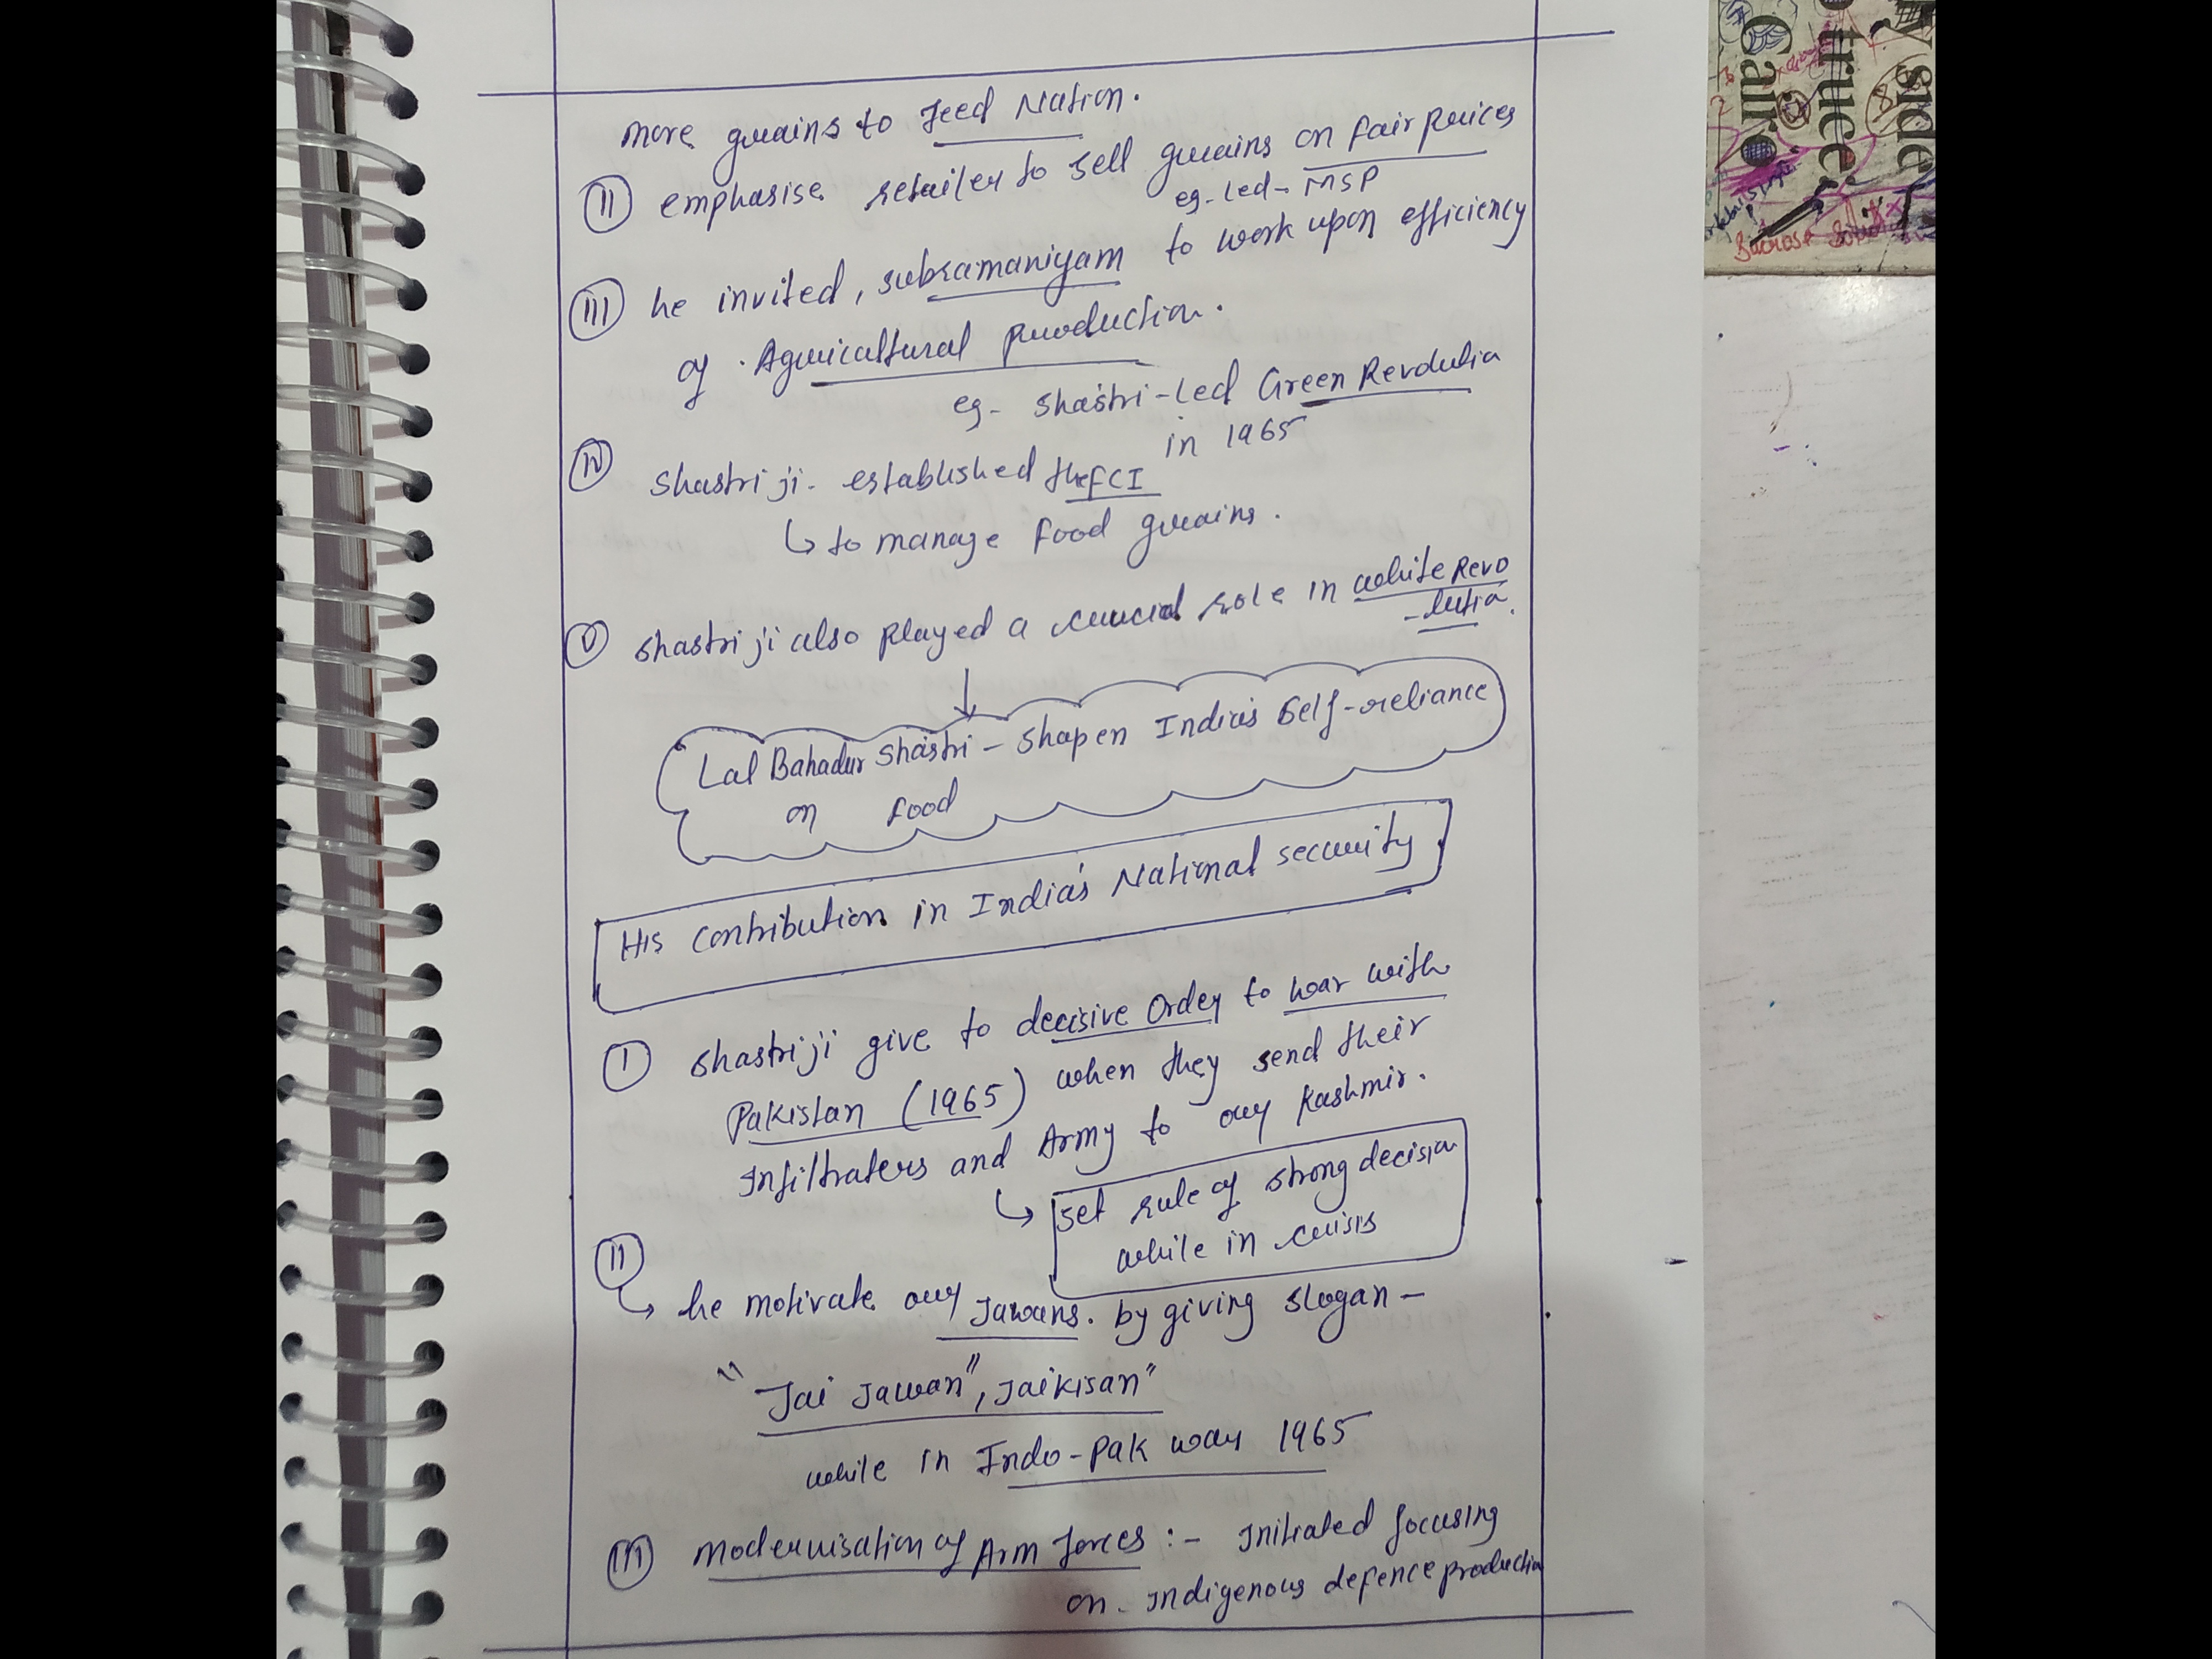 more grains to feed Nation.
(II) emphasise retailer to sell grains on fair prices
eg- led- MSP
(III) he invited, subramaniyam to work upon efficiency
of . Agricultural production.
eg- Shastri-led Green Revolution
in 1965
(IV) Shastri ji- established the FCI
↳ to manage food grains.
(V) Shastri ji also played a crucial role in white Revo
-lution.
Lal Bahadur Shastri - shapen India's Self-reliance
on food
His contribution in India's National security
(I) Shastri ji give to decisive Order to war with
Pakistan (1965) when they send their
Infiltraters and Army to our Kashmir.
↳ set rule of strong decision
while in crisis
(II)
↳ he motivate our Jawans. by giving slogan -
"Jai Jawan", Jaikisan"
while in Indo-Pak war 1965
(III) Modernisation of Arm forces :- Initiated focusing
on. Indigenous defence production
y side
true,
Caire
Sucrose